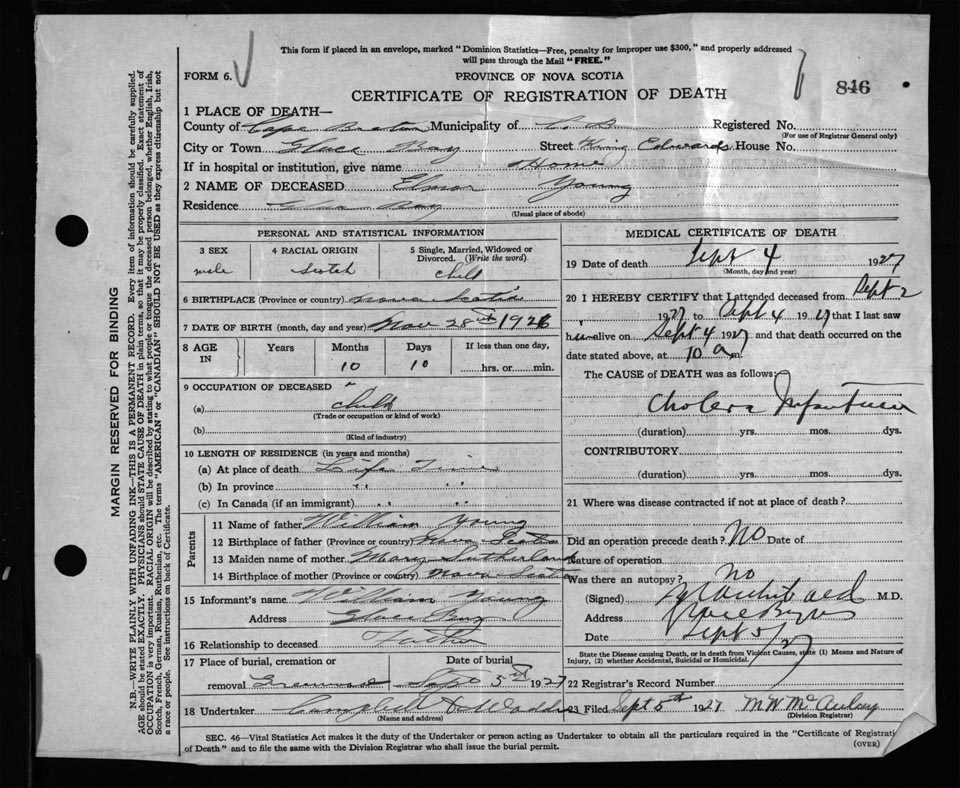 This form if placed in an envelope, marked "Dominion Statistics—Free, penalty for improper use $300," and properly addressed
will pass through the Mail "FREE."
FORM 6.
PROVINCE OF NOVA SCOTIA
846
CERTIFICATE OF REGISTRATION OF DEATH
1 PLACE OF DEATH—
County of Cape Breton Municipality of C. B. Registered No.
(For use of Registrar General only)
City or Town Glace Bay Street King Edward House No.
If in hospital or institution, give name Home
2 NAME OF DECEASED Young
Residence Glace Bay
(Usual place of abode)
PERSONAL AND STATISTICAL INFORMATION
3 SEX 4 RACIAL ORIGIN 5 Single, Married, Widowed or
Divorced. (Write the word)
male Scotch child
6 BIRTHPLACE (Province or country) Nova Scotia
7 DATE OF BIRTH (month, day and year) Nov 28th 1926
8 AGE IN Years Months Days If less than one day,
10 10 hrs. or min.
9 OCCUPATION OF DECEASED
(a) child
(Trade or occupation or kind of work)
(b)
(Kind of industry)
10 LENGTH OF RESIDENCE (in years and months)
(a) At place of death Life Time
(b) In province " "
(c) In Canada (if an immigrant) " "
Parents
11 Name of father William Young
12 Birthplace of father (Province or country) Nova Scotia
13 Maiden name of mother Mary Sutherland
14 Birthplace of mother (Province or country) Nova Scotia
15 Informant's name William Young
Address Glace Bay
16 Relationship to deceased Father
17 Place of burial, cremation or Date of burial
removal Greenwood Sept 5th 1927
18 Undertaker Campbell &
(Name and address)
MEDICAL CERTIFICATE OF DEATH
19 Date of death Sept 4 1927
(Month, day and year)
20 I HEREBY CERTIFY that I attended deceased from Sept 2
1927 to Sept 4 1927 that I last saw
him alive on Sept 4 1927 and that death occurred on the
date stated above, at 10 a m.
The CAUSE of DEATH was as follows:
Cholera Infantum
(duration) yrs. mos. dys.
CONTRIBUTORY
(duration) yrs. mos. dys.
21 Where was disease contracted if not at place of death?
Did an operation precede death? No Date of
Nature of operation
Was there an autopsy? no
(Signed) M.D.
Address
Date Sept 5/27
State the Disease causing Death, or in death from Violent Causes, state (1) Means and Nature of
Injury, (2) whether Accidental, Suicidal or Homicidal.
22 Registrar's Record Number
23 Filed Sept 5th 1927 M W McAulay
(Division Registrar)
SEC. 46—Vital Statistics Act makes it duty of the Undertaker or person acting as Undertaker to obtain all the particulars required in the "Certificate of Registration
of Death" and to file the same with the Division Registrar who shall issue the burial permit.
(OVER)
MARGIN RESERVED FOR BINDING
N.B.—WRITE PLAINLY WITH UNFADING INK—THIS IS A PERMANENT RECORD. Every item of information should be carefully supplied.
AGE should be stated EXACTLY. PHYSICIANS should STATE CAUSE OF DEATH in plain terms, so that it may be properly classified. Exact statement of
OCCUPATION is very important. RACIAL ORIGIN will be described by stating to what people or tongue the deceased person belonged, whether English, Irish,
Scotch, French, German, Russian, Ruthenian, etc. The terms "AMERICAN" or "CANADIAN" SHOULD NOT BE USED as they express citizenship but not
a race or people. See instructions on back of Certificate.